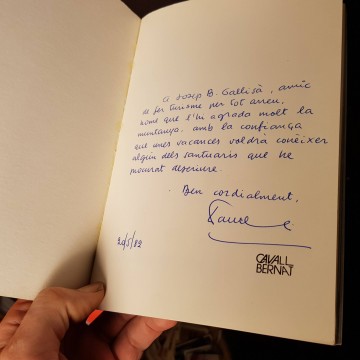 A Josep B. Gallisà, amic
de fer turisme per tot arreu,
home que s'hi agrada molt la
muntanya. amb la confiança
que unes vacances voldrà conèixer
algun dels santuaris que he
procurat descriure.
Ben cordialment,
20/5/82
CAVALL
BERNAT